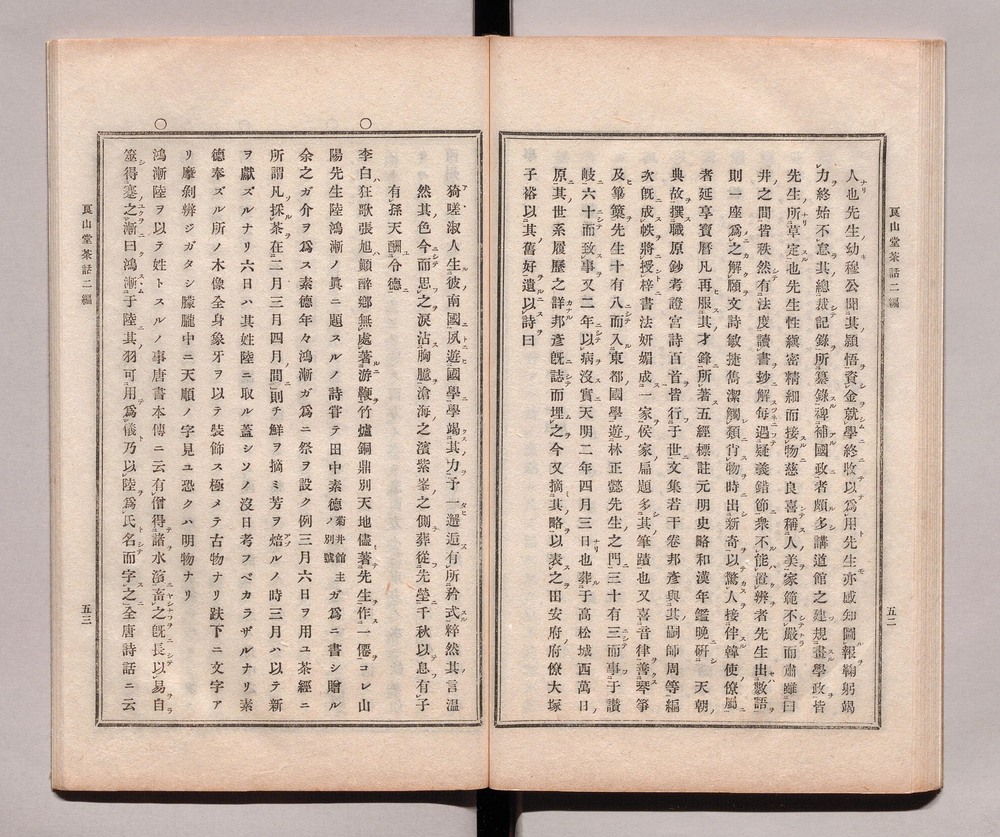 人也先生幼穆公聞其頴悟資金就學終收以爲用先生亦感知圖報鞠躬竭
力終始不怠其總裁記錄所纂錄碑補國政者頗多講道館之建規畫學政皆
先生所草定也先生性縝密精細而接物慈良喜稱人美家範不嚴而肅雝曰
井之間皆秩然有法度讀書妙解每遇疑義錯節衆不能置辨者先生出數語
則一座爲之解願文詩敏捷雋潔觸類肖物時出新奇以驚人接伴韓使僚屬
者延享寶曆凡再服其才鋒所著五經標註元明史略和漢年鑑晩硏 天朝
典故撰職原鈔考證宮詩百首皆行于世文集若干卷邦彥與其嗣師周等編
次旣成帙將授梓書法妍媚成一家侯家扁題多其筆蹟也又喜音律善琴箏
及篳篥先生十有八而入東都國學遊林正懿先生之門三十有三而事于讃
岐六十而致事又二年以病沒實天明二年四月三日也葬于高松城西萬日
原其世系履歷之詳邦彥旣誌而埋之今又摘其略以表之田安府府僚大塚
子裕以其舊好遺以詩曰
艮山堂茶話二編
五二
猗嗟淑人生彼南國夙遊國學學竭其力予一邂逅有所矜式粹然其言溫
然其色今而思之淚沾胸臆滄海之濱紫峯之側葬從先塋千秋以息有子
有孫天酬令德
○李白狂歌張旭顚醉鄉無處著游鞭竹爐銅鼎別天地儘著先生作一僊コレ山
陽先生陸鴻漸ノ眞ニ題スルノ詩甞テ田中素德菊井館主ノ別號ガ爲ニ書シ贈ル
余之ガ介ヲ爲ス素德年々鴻漸ガ爲ニ祭ヲ設ク例三月六日ヲ用ユ茶經ニ
所謂凡採茶在二月三月四月間則チ鮮ヲ摘ミ芳ヲ焙ルノ時三月ハ以テ新
ヲ獻ズルナリ六日ハ其姓陸ニ取ル蓋シソノ沒日考フベカラザルナリ素
德奉ズル所ノ木像全身象牙ヲ以テ裝飾ス極メテ古物ナリ趺下ニ文字ア
リ摩剝辨ジガタシ朦朧中ニ天順ノ字見ユ恐クハ明物ナリ
○鴻漸陸ヲ以テ姓トスルノ事唐書本傳ニ云有僧得諸水濱畜之旣長以易自
筮得蹇之漸曰鴻漸于陸其羽可用爲儀乃以陸爲氏名而字之全唐詩話ニ云
艮山堂茶話二編
五三